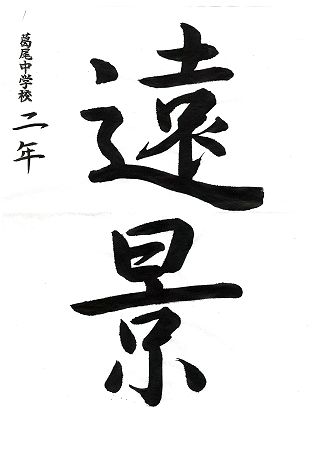 遠景
葛尾中学校 二年